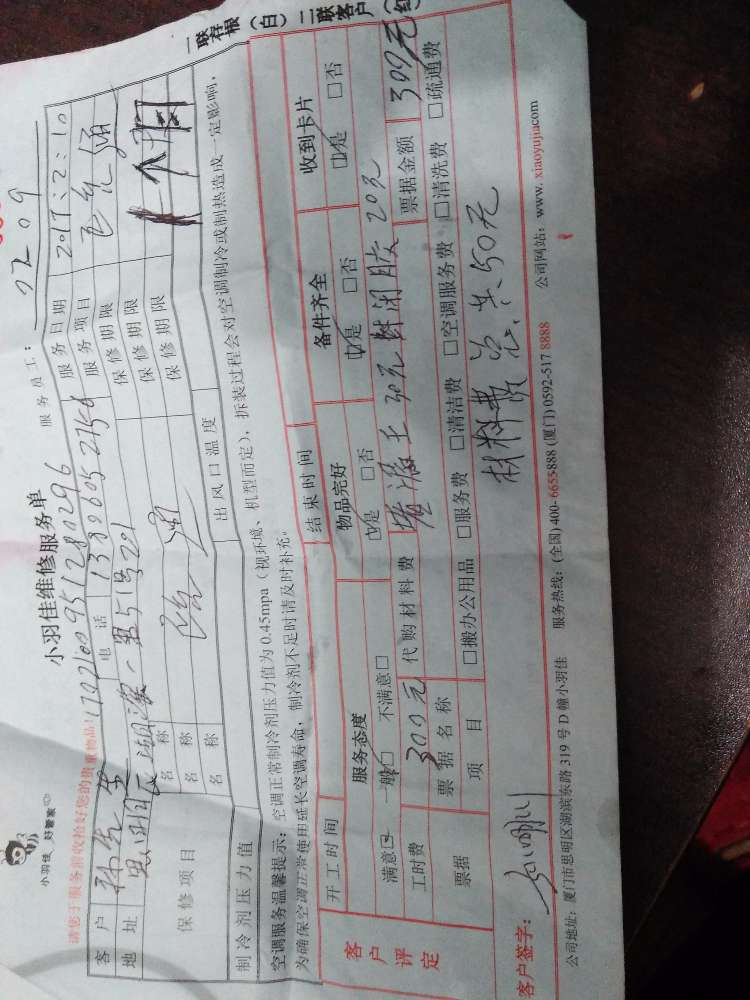 小羽佳 好管家
小羽佳维修服务单
请您于服务前收拾好您的贵重物品!
服务员工: 0209
客户 电话 13896052756 服务日期 2017:2:10
地址 服务项目
保修项目 名称 保修期限
名称 保修期限 一个月
名称 保修期限
制冷剂压力值 出风口温度
空调服务温馨提示: 空调正常制冷剂压力值为0.45mpa(视环境、机型而定),拆装过程会对空调制冷或制热造成一定影响,
为确保空调正常使用延长空调寿命,制冷剂不足时请及时补充。
一联存根(白) 二联客户(红
客户评定
开工时间 结束时间
服务态度 物品完好 备件齐全 收到卡片
满意☑ 一般□ 不满意□ ☑是 □否 ☑是 □否 ☑是 □否
工时费 300元 代购材料费 20元
票据 票据名称 票据金额 300元
项目 □搬办公用品 □服务费 □清洁费 □空调服务费 □清洗费 □疏通费
材料费 共50元
客户签字:
公司地址: 厦门市思明区湖滨东路319号D幢小羽佳 服务热线: (全国)400-6655-888 (厦门)0592-517 8888 公司网站: www. xiaoyujia.com